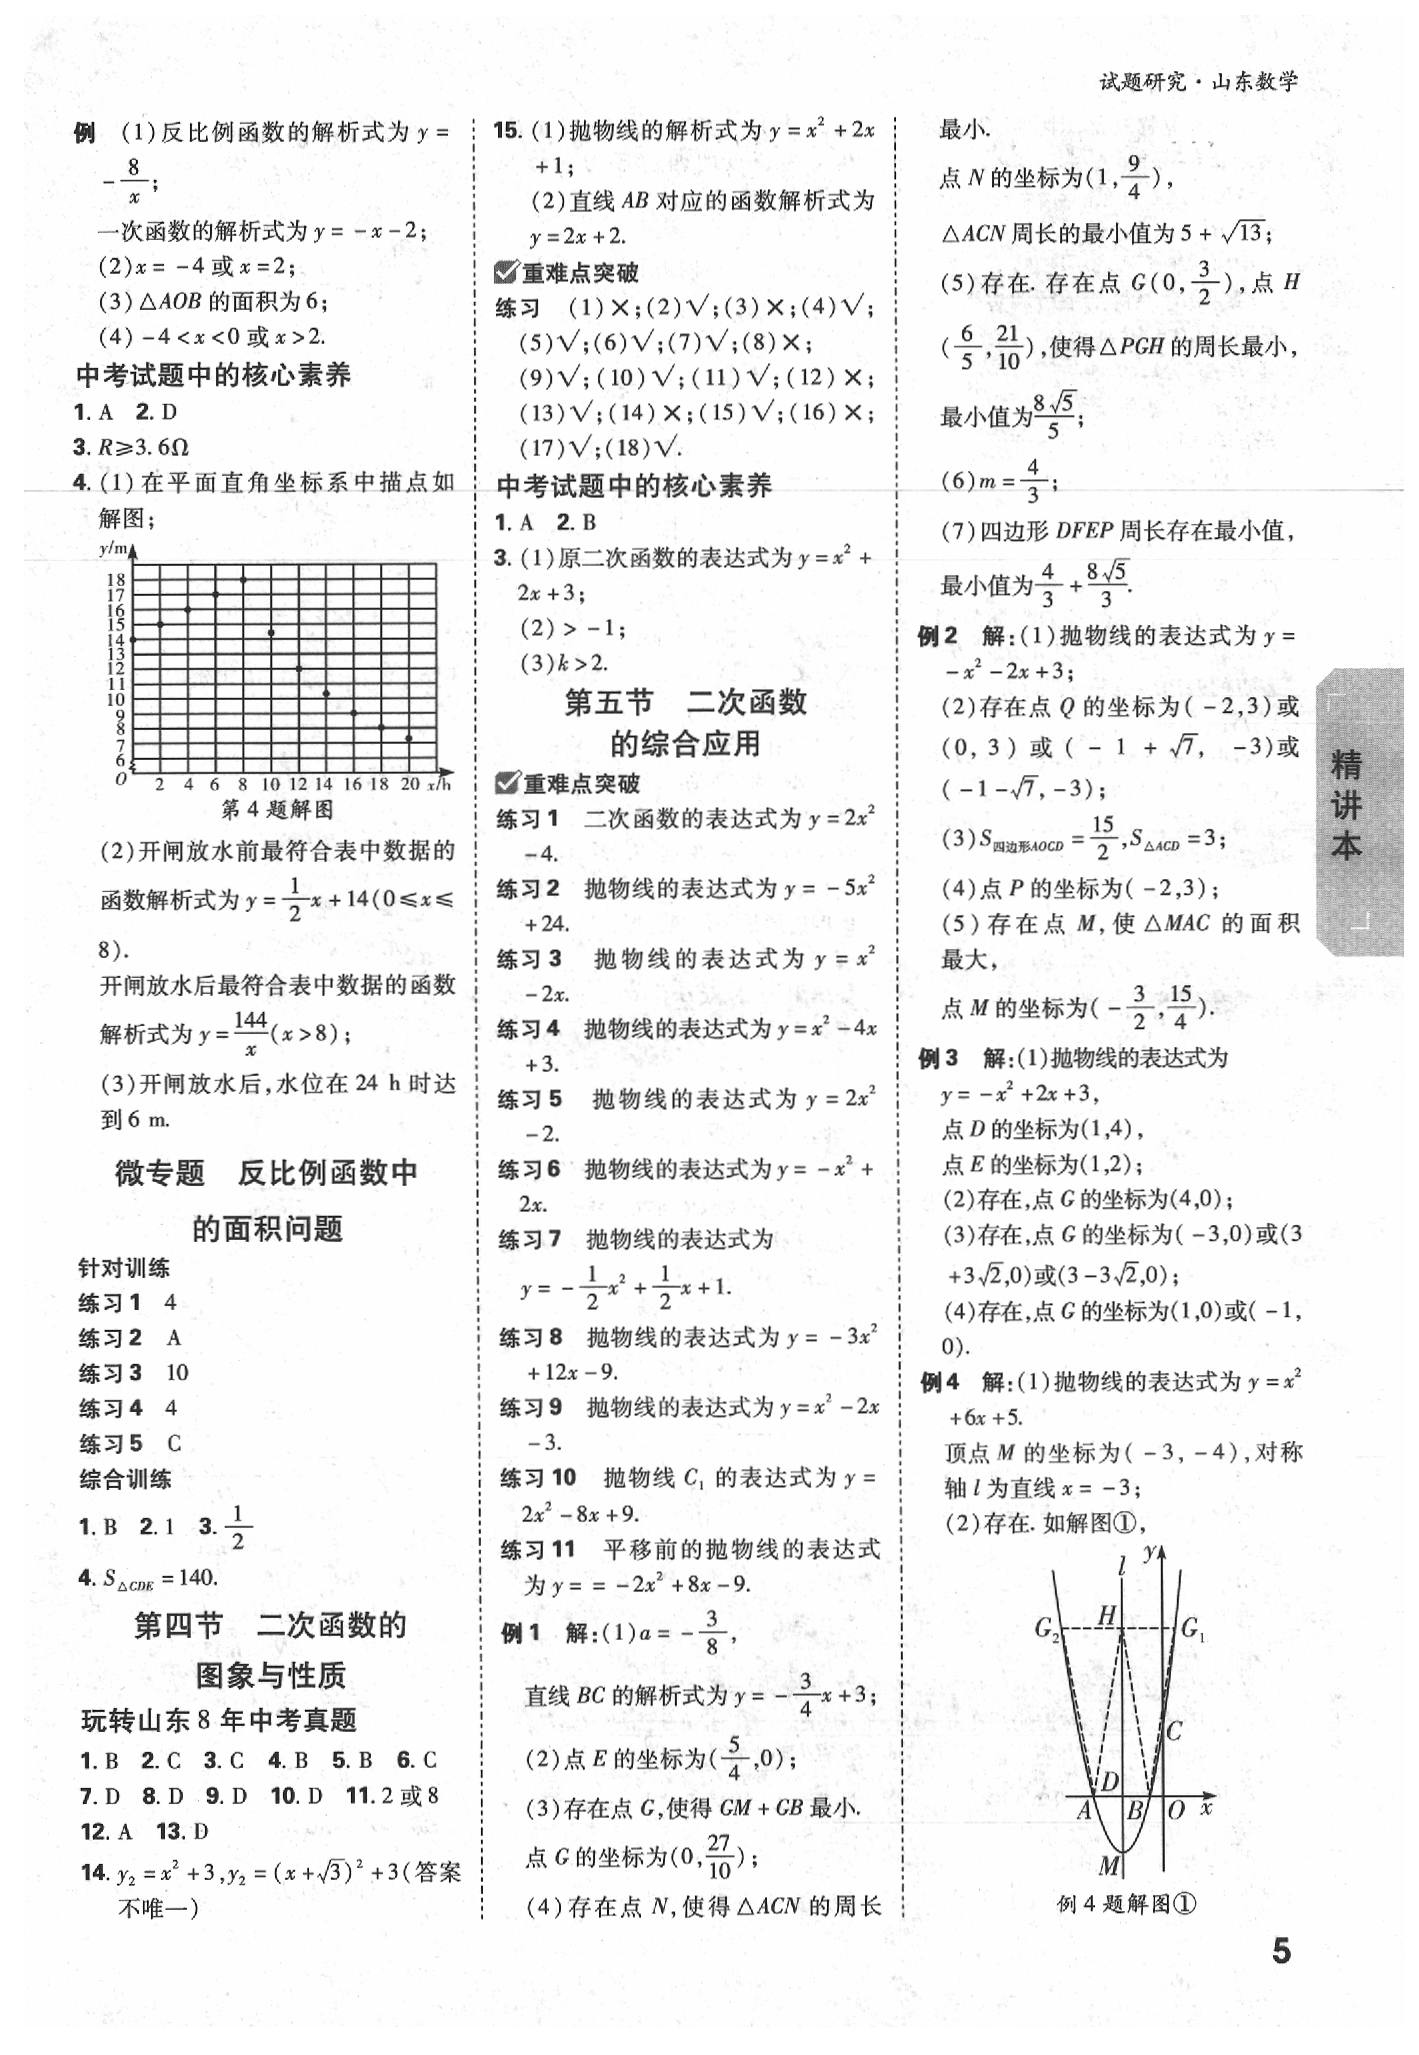 试题研究·山东数学
例 (1)反比例函数的解析式为 y =
-8/x;
一次函数的解析式为 y = -x-2;
(2)x = -4 或 x=2;
(3)△AOB 的面积为6;
(4) -4<x<0 或 x>2.
中考试题中的核心素养
1. A 2. D
3. R≥3.6Ω
4. (1)在平面直角坐标系中描点如
解图;
y/m
18
17
16
15
14
13
12
11
10
9
8
7
6
O 2 4 6 8 10 12 14 16 18 20 x/h
第4题解图
(2)开闸放水前最符合表中数据的
函数解析式为 y = 1/2 x+14(0≤x≤
8).
开闸放水后最符合表中数据的函数
解析式为 y = 144/x (x>8);
(3)开闸放水后,水位在 24 h 时达
到6 m.
微专题 反比例函数中
的面积问题
针对训练
练习1 4
练习2 A
练习3 10
练习4 4
练习5 C
综合训练
1. B 2. 1 3. 1/2
4. S△CDE = 140.
第四节 二次函数的
图象与性质
玩转山东8年中考真题
1. B 2. C 3. C 4. B 5. B 6. C
7. D 8. D 9. D 10. D 11. 2或8
12. A 13. D
14. y₂ = x² +3, y₂ = (x+√3)² +3(答案
不唯一)
15. (1)抛物线的解析式为 y = x² +2x
+1;
(2)直线 AB 对应的函数解析式为
y=2x+2.
重难点突破
练习 (1)×;(2)√;(3)×;(4)√;
(5)√;(6)√;(7)√;(8)×;
(9)√;(10)√;(11)√;(12)×;
(13)√;(14)×;(15)√;(16)×;
(17)√;(18)√.
中考试题中的核心素养
1. A 2. B
3. (1)原二次函数的表达式为 y=x² +
2x+3;
(2) > -1;
(3)k>2.
第五节 二次函数
的综合应用
重难点突破
练习1 二次函数的表达式为 y=2x²
-4.
练习2 抛物线的表达式为 y = -5x²
+24.
练习3 抛物线的表达式为 y = x²
-2x.
练习4 抛物线的表达式为 y=x² -4x
+3.
练习5 抛物线的表达式为 y = 2x²
-2.
练习6 抛物线的表达式为 y = -x² +
2x.
练习7 抛物线的表达式为
y = -1/2 x² + 1/2 x+1.
练习8 抛物线的表达式为 y = -3x²
+12x-9.
练习9 抛物线的表达式为 y=x² -2x
-3.
练习10 抛物线 C₁ 的表达式为 y =
2x² -8x+9.
练习11 平移前的抛物线的表达式
为 y = = -2x² +8x-9.
例1 解:(1)a = -3/8,
直线 BC 的解析式为 y = -3/4 x+3;
(2)点 E 的坐标为(5/4,0);
(3)存在点 G,使得 GM+GB 最小.
点 G 的坐标为(0,27/10);
(4)存在点 N,使得△ACN 的周长
最小.
点 N 的坐标为(1,9/4),
△ACN 周长的最小值为 5+√13;
(5)存在. 存在点 G(0,3/2),点 H
(6/5,21/10),使得△PGH 的周长最小,
最小值为8√5/5;
(6)m = 4/3;
(7)四边形 DFEP 周长存在最小值,
最小值为4/3 + 8√5/3.
例2 解:(1)抛物线的表达式为 y =
-x² -2x+3;
(2)存在点 Q 的坐标为(-2,3)或
(0,3)或(-1+√7, -3)或
(-1-√7, -3);
(3)S四边形AOCD = 15/2, S△ACD = 3;
(4)点 P 的坐标为(-2,3);
(5)存在点 M,使△MAC 的面积
最大,
点 M 的坐标为(-3/2,15/4).
例3 解:(1)抛物线的表达式为
y = -x² +2x+3,
点 D 的坐标为(1,4),
点 E 的坐标为(1,2);
(2)存在,点 G 的坐标为(4,0);
(3)存在,点 G 的坐标为(-3,0)或(3
+3√2,0)或(3-3√2,0);
(4)存在,点 G 的坐标为(1,0)或(-1,
0).
例4 解:(1)抛物线的表达式为 y=x²
+6x+5.
顶点 M 的坐标为(-3, -4),对称
轴 l 为直线 x = -3;
(2)存在. 如解图①,
l y
G₂ H G₁
C
D
A B O x
M
例4题解图①
精讲本
5